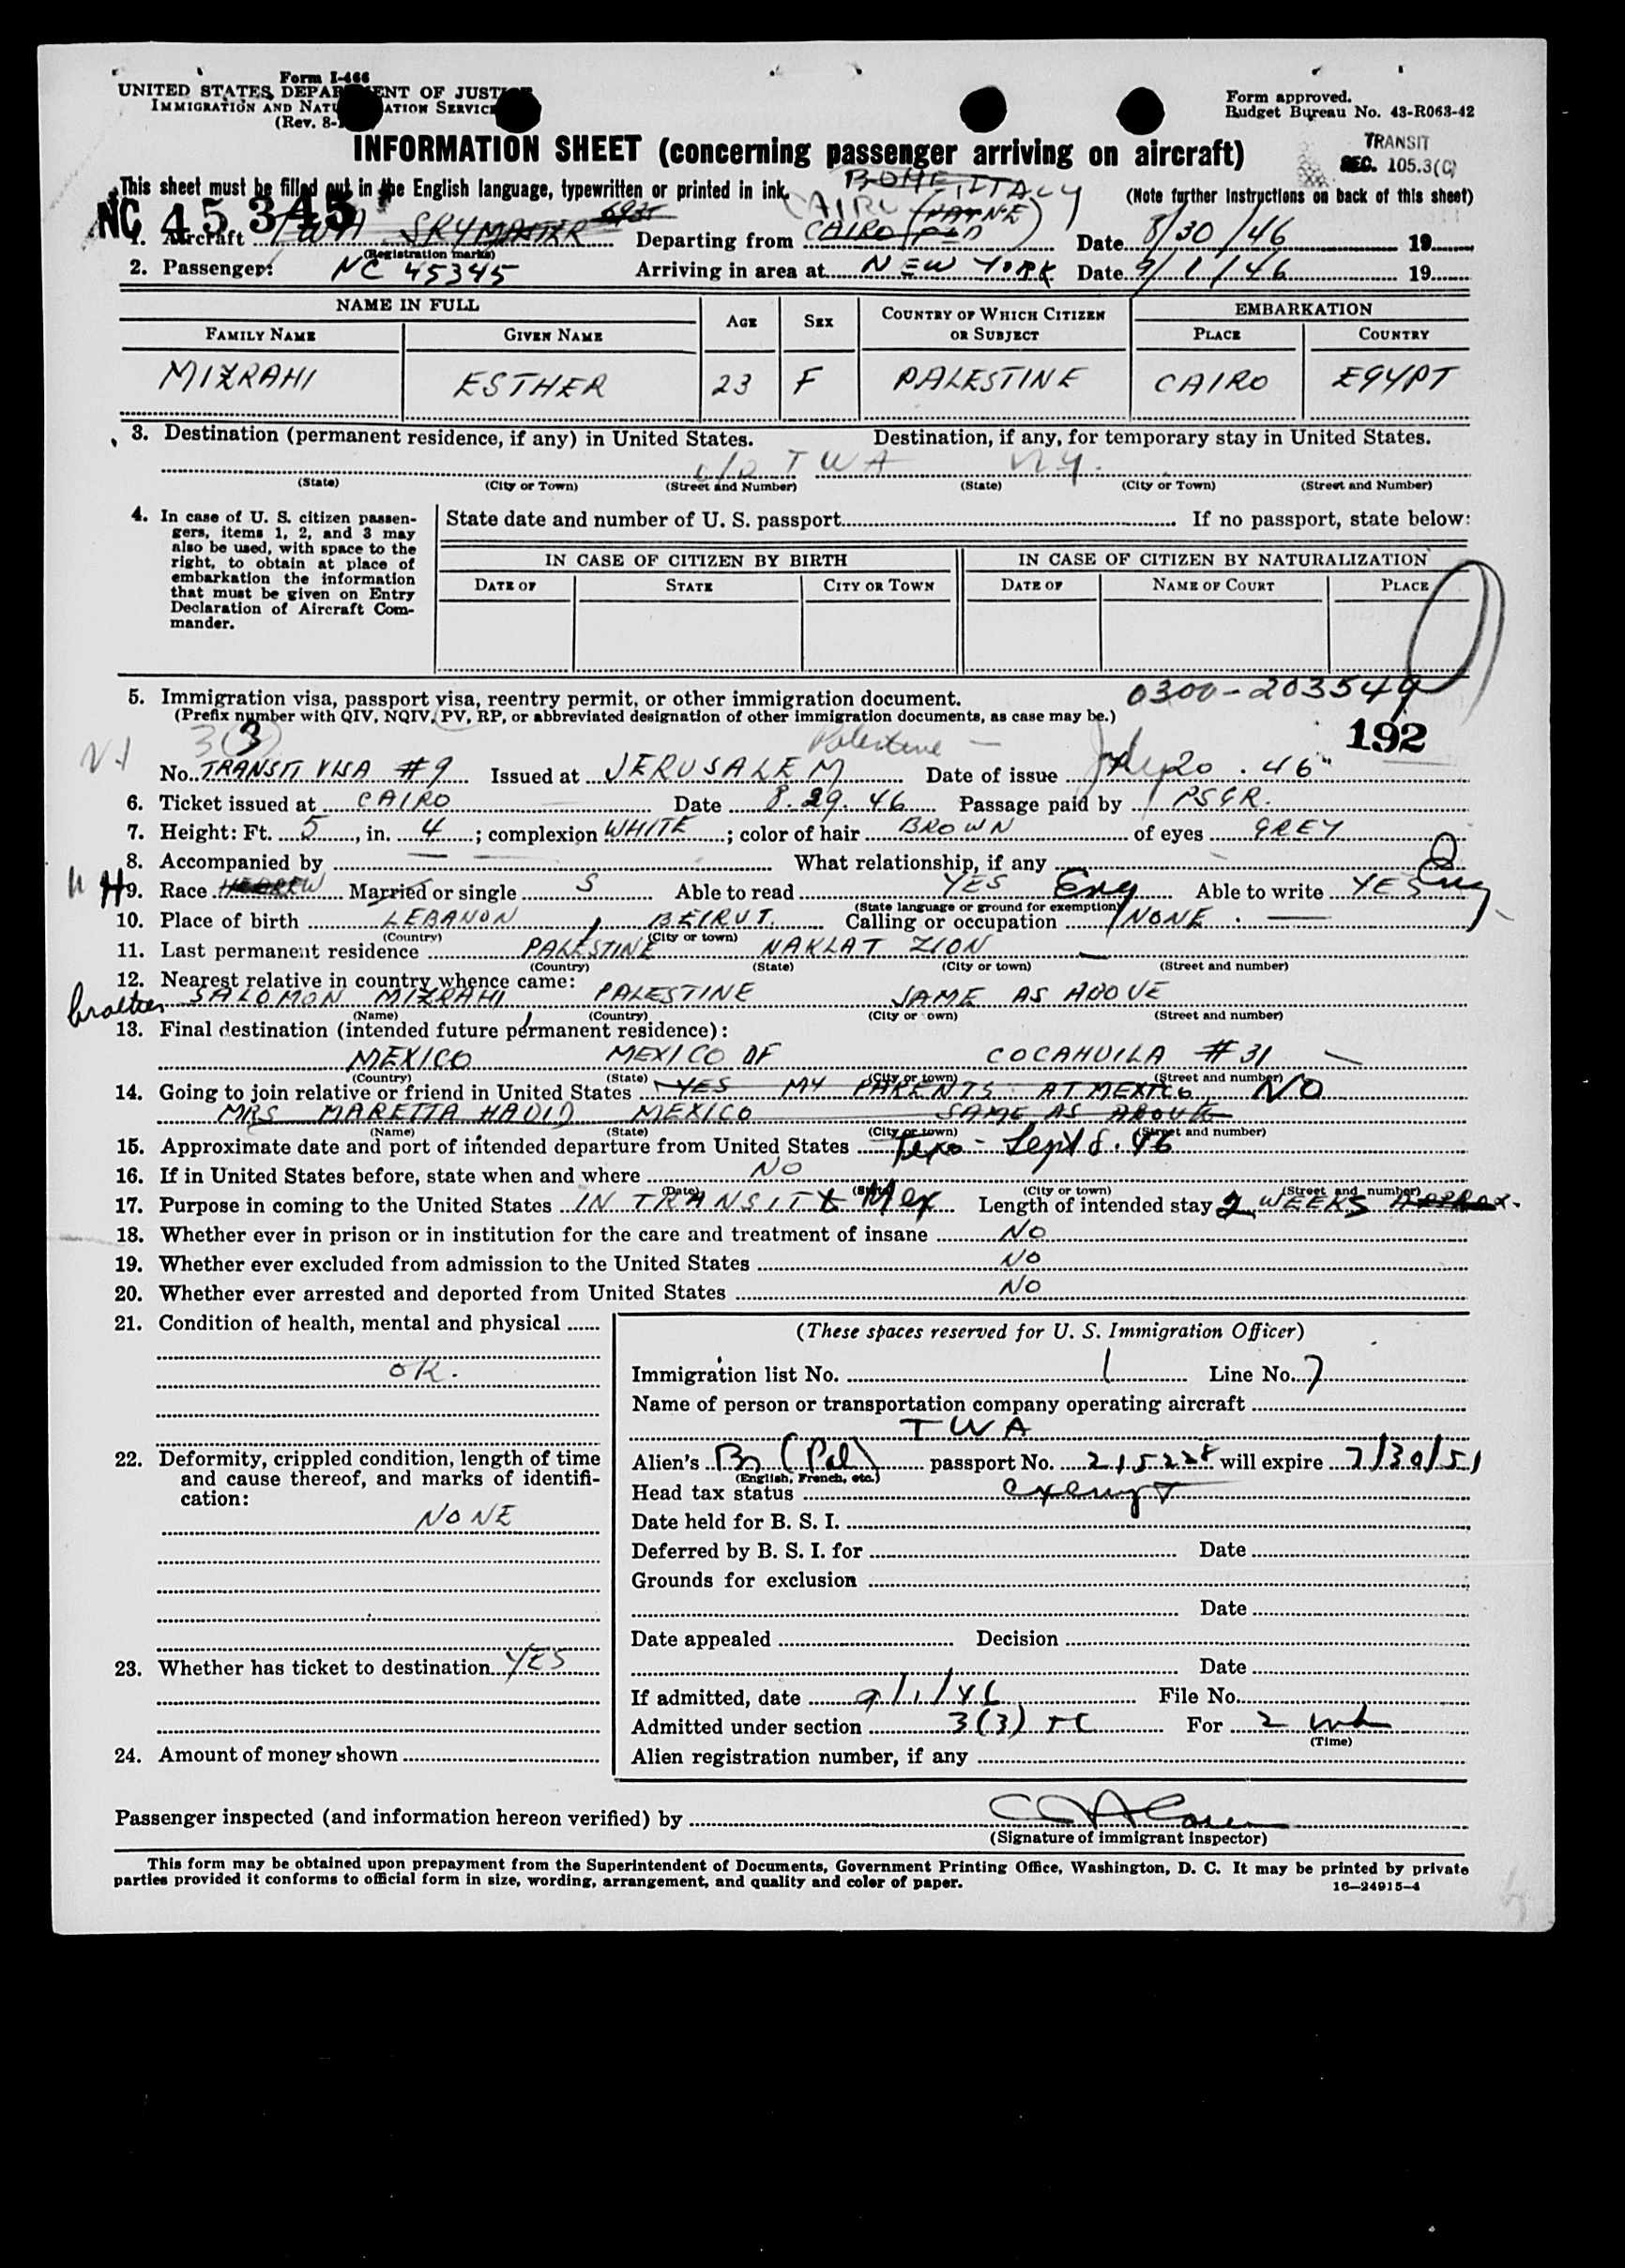 Form I-466
UNITED STATES DEPARTMENT OF JUSTICE
IMMIGRATION AND NATURALIZATION SERVICE
(Rev. 8-
Form approved.
Budget Bureau No. 43-R063-42
INFORMATION SHEET (concerning passenger arriving on aircraft)
TRANSIT
SEC. 105.3(C)
This sheet must be filled out in the English language, typewritten or printed in ink.
ROME ITALY
(Note further instructions on back of this sheet)
NC 45345
CAIRO (PAYNE)
1. Aircraft TWA SKYMASTER Departing from CAIRO Date 8/30/46 19
(Registration marks)
2. Passenger: NC 45345 Arriving in area at NEW YORK Date 9/1/46 19
NAME IN FULL AGE SEX COUNTRY OF WHICH CITIZEN OR SUBJECT EMBARKATION
FAMILY NAME GIVEN NAME PLACE COUNTRY
MIZRAHI ESTHER 23 F PALESTINE CAIRO EGYPT
3. Destination (permanent residence, if any) in United States. Destination, if any, for temporary stay in United States.
c/o TWA NY.
(State) (City or Town) (Street and Number) (State) (City or Town) (Street and Number)
4. In case of U. S. citizen passengers, items 1, 2, and 3 may also be used, with space to the right, to obtain at place of embarkation the information that must be given on Entry Declaration of Aircraft Commander.
State date and number of U. S. passport If no passport, state below:
IN CASE OF CITIZEN BY BIRTH IN CASE OF CITIZEN BY NATURALIZATION
DATE OF STATE CITY OR TOWN DATE OF NAME OF COURT PLACE
5. Immigration visa, passport visa, reentry permit, or other immigration document. 0300-203549
(Prefix number with QIV, NQIV, PV, RP, or abbreviated designation of other immigration documents, as case may be.)
192
3(3) Palestine
No. TRANSIT VISA #9 Issued at JERUSALEM Date of issue July 20. 46
6. Ticket issued at CAIRO Date 8.29.46 Passage paid by PSGR.
7. Height: Ft. 5, in. 4; complexion WHITE; color of hair BROWN of eyes GREY
8. Accompanied by What relationship, if any
H 9. Race HEBREW Married or single S Able to read YES Eng Able to write YES Eng
(State language or ground for exemption)
10. Place of birth LEBANON, BEIRUT. Calling or occupation NONE.
(Country) (City or town)
11. Last permanent residence PALESTINE NAKLAT ZION
(Country) (State) (City or town) (Street and number)
12. Nearest relative in country whence came:
brother SALOMON MIZRAHI PALESTINE SAME AS ABOVE
(Name) (Country) (City or town) (Street and number)
13. Final destination (intended future permanent residence):
MEXICO MEXICO DF COCAHUILA #31
(Country) (State) (City or town) (Street and number)
14. Going to join relative or friend in United States YES MY PARENTS AT MEXICO NO
MRS MARETTA HADID MEXICO SAME AS ABOVE
(Name) (State) (City or town) (Street and number)
15. Approximate date and port of intended departure from United States Sept 8. 46
16. If in United States before, state when and where NO
(Date) (State) (City or town) (Street and number)
17. Purpose in coming to the United States IN TRANSIT to Mex Length of intended stay 2 WEEKS APPROX.
18. Whether ever in prison or in institution for the care and treatment of insane NO
19. Whether ever excluded from admission to the United States NO
20. Whether ever arrested and deported from United States NO
21. Condition of health, mental and physical
OK.
22. Deformity, crippled condition, length of time and cause thereof, and marks of identification:
NONE
23. Whether has ticket to destination YES
24. Amount of money shown
(These spaces reserved for U. S. Immigration Officer)
Immigration list No. 1 Line No. 7
Name of person or transportation company operating aircraft
TWA
Alien's Br (Pal) passport No. 215228 will expire 7/30/51
(English, French, etc.)
Head tax status exempt
Date held for B. S. I.
Deferred by B. S. I. for Date
Grounds for exclusion
Date
Date appealed Decision
Date
If admitted, date 9/1/46 File No.
Admitted under section 3(3) TC For 2 wk
(Time)
Alien registration number, if any
Passenger inspected (and information hereon verified) by
(Signature of immigrant inspector)
This form may be obtained upon prepayment from the Superintendent of Documents, Government Printing Office, Washington, D. C. It may be printed by private
parties provided it conforms to official form in size, wording, arrangement, and quality and color of paper.
16—24915-4